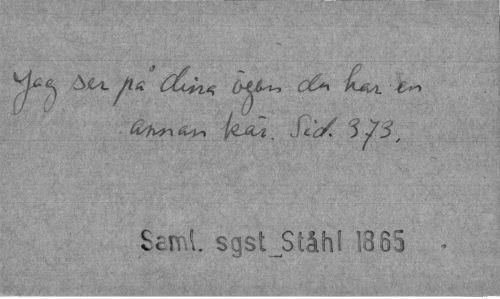 Jag ser på dina ögon du har en
annan kär. Sid. 373.
Saml. sgst_Ståhl 1865